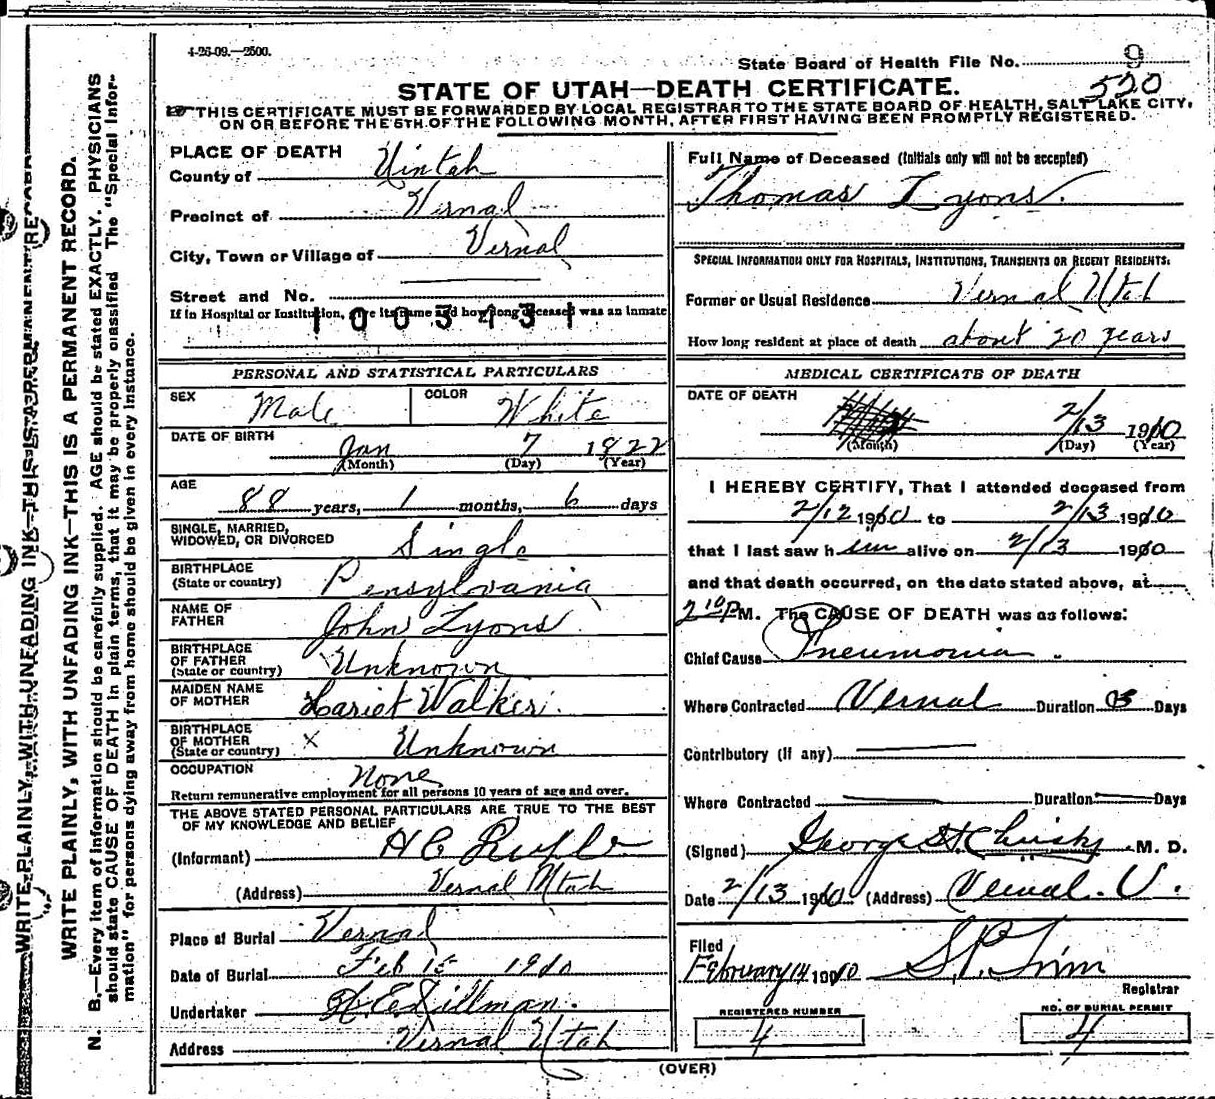 4-26-09.—2500.
State Board of Health File No. 9
520
STATE OF UTAH—DEATH CERTIFICATE.
THIS CERTIFICATE MUST BE FORWARDED BY LOCAL REGISTRAR TO THE STATE BOARD OF HEALTH, SALT LAKE CITY,
ON OR BEFORE THE 5TH OF THE FOLLOWING MONTH, AFTER FIRST HAVING BEEN PROMPTLY REGISTERED.
PLACE OF DEATH
County of Uintah
Precinct of Vernal
City, Town or Village of Vernal
Street and No.
If in Hospital or Institution, give its name and how long deceased was an inmate
1003431
PERSONAL AND STATISTICAL PARTICULARS
SEX Male COLOR White
DATE OF BIRTH
Jan 7 1822
(Month) (Day) (Year)
AGE
88 years, 1 months, 6 days
SINGLE, MARRIED,
WIDOWED, OR DIVORCED Single
BIRTHPLACE
(State or country) Pensylvania
NAME OF
FATHER John Lyons
BIRTHPLACE
OF FATHER
(State or country) Unknown
MAIDEN NAME
OF MOTHER Hariet Walker
BIRTHPLACE
OF MOTHER
(State or country) X Unknown
OCCUPATION None
Return remunerative employment for all persons 10 years of age and over.
THE ABOVE STATED PERSONAL PARTICULARS ARE TRUE TO THE BEST
OF MY KNOWLEDGE AND BELIEF
(Informant) H C
(Address) Vernal Utah
Place of Burial Vernal
Date of Burial Feb 15 1910
Undertaker Dillman.
Address Vernal Utah
Full Name of Deceased (Initials only will not be accepted)
Thomas Lyons.
SPECIAL INFORMATION ONLY FOR HOSPITALS, INSTITUTIONS, TRANSIENTS OR RECENT RESIDENTS.
Former or Usual Residence Vernal Utah
How long resident at place of death about 20 years
MEDICAL CERTIFICATE OF DEATH
DATE OF DEATH
2/13 1910
(Month) (Day) (Year)
I HEREBY CERTIFY, That I attended deceased from
2/12 1910 to 2/13 1910
that I last saw him alive on 2/13 1910
and that death occurred, on the date stated above, at
2 10 P M. The CAUSE OF DEATH was as follows:
Chief Cause Pneumonia.
Where Contracted Vernal Duration 3 Days
Contributory (if any)
Where Contracted Duration Days
(Signed) George M. D.
Date 2/13 1910 (Address) Vernal. U.
Filed
February 14 1910
Registrar
REGISTERED NUMBER
4
NO. OF BURIAL PERMIT
4
(OVER)
WRITE PLAINLY, WITH UNFADING INK—THIS IS A PERMANENT RECORD.
WRITE PLAINLY, WITH UNFADING INK—THIS IS A PERMANENT RECORD.
N. B.—Every item of information should be carefully supplied. AGE should be stated EXACTLY. PHYSICIANS
should state CAUSE OF DEATH in plain terms, that it may be properly classified. The "Special Infor-
mation" for persons dying away from home should be given in every instance.